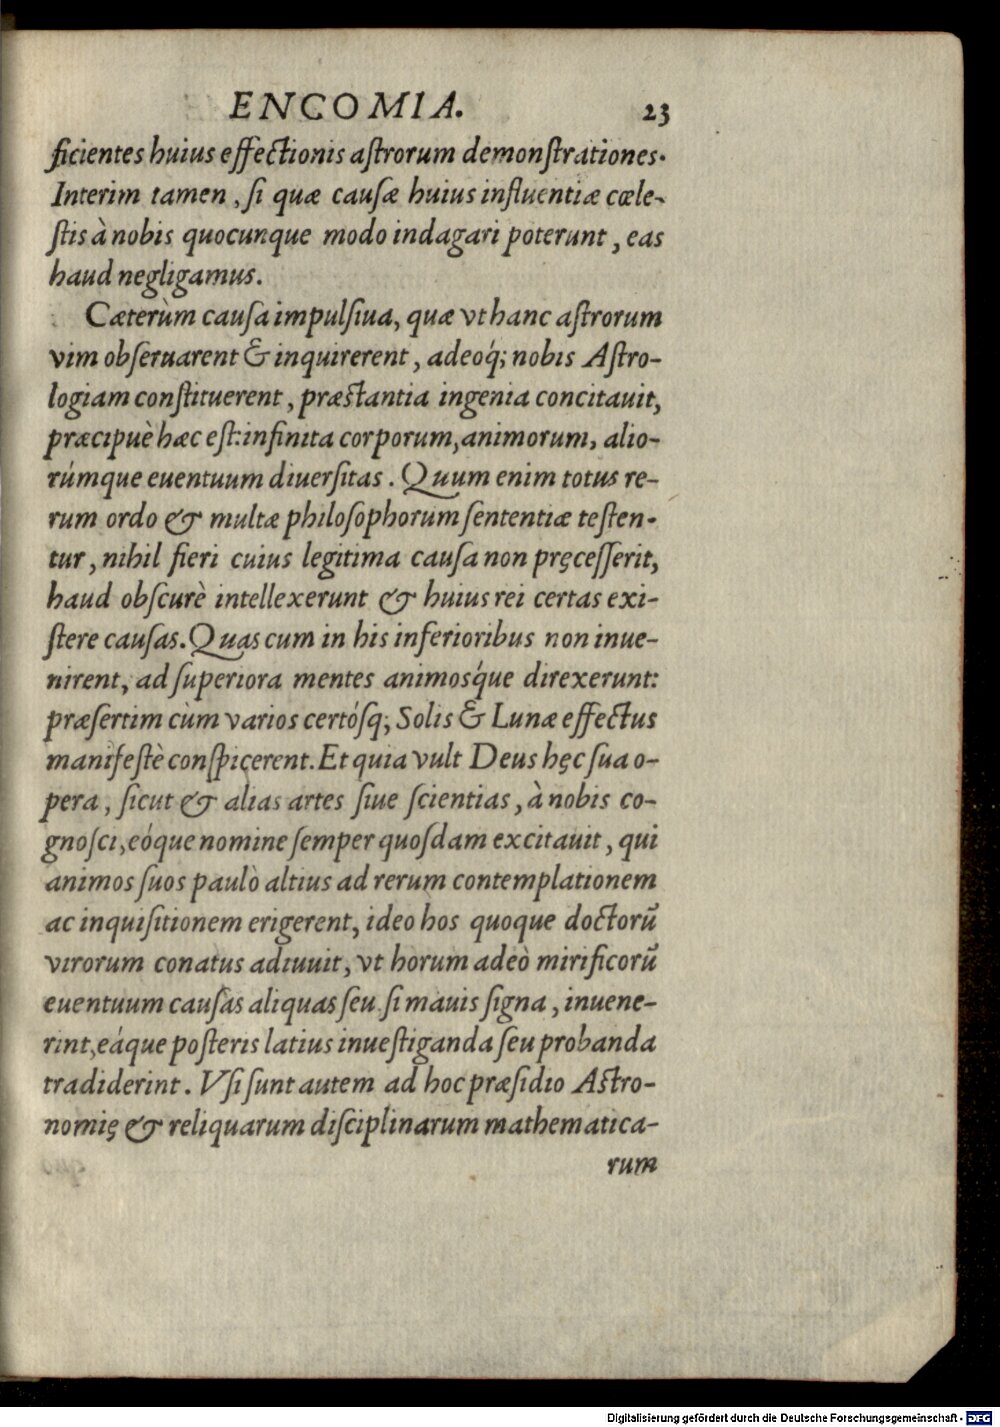 ENCOMIA. 23
ficientes huius effectionis aſtrorum demonſtrationes.
Interim tamen, ſi quæ cauſæ huius influentiæ cœle-
ſtis à nobis quocunque modo indagari poterunt, eas
haud negligamus.
Cæterùm cauſa impulſiua, quæ vt hanc aſtrorum
vim obſeruarent & inquirerent, adeoq́; nobis Aſtro-
logiam conſtituerent, præſtantia ingenia concitauit,
præcipuè hæc eſt: infinita corporum, animorum, alio-
rúmque euentuum diuerſitas. Quum enim totus re-
rum ordo & multæ philoſophorum ſententiæ teſten-
tur, nihil fieri cuius legitima cauſa non pręceſſerit,
haud obſcurè intellexerunt & huius rei certas exi-
ſtere cauſas. Quas cum in his inferioribus non inue-
nirent, ad ſuperiora mentes animosq́ue direxerunt:
præſertim cùm varios certóſq; Solis & Lunæ effectus
manifeſtè conſpicerent. Et quia vult Deus hęc ſua o-
pera, ſicut & alias artes ſiue ſcientias, à nobis co-
gnoſci, eóque nomine ſemper quoſdam excitauit, qui
animos ſuos paulò altius ad rerum contemplationem
ac inquiſitionem erigerent, ideo hos quoque doctorū
virorum conatus adiuuit, vt horum adeò mirificorū
euentuum cauſas aliquas ſeu ſi mauis ſigna, inuene-
rint, eáque poſteris latius inueſtiganda ſeu probanda
tradiderint. Vſi ſunt autem ad hoc præſidio Aſtro-
nomię & reliquarum diſciplinarum mathematica-
rum
Digitalisierung gefördert durch die Deutsche Forschungsgemeinschaft - DFG